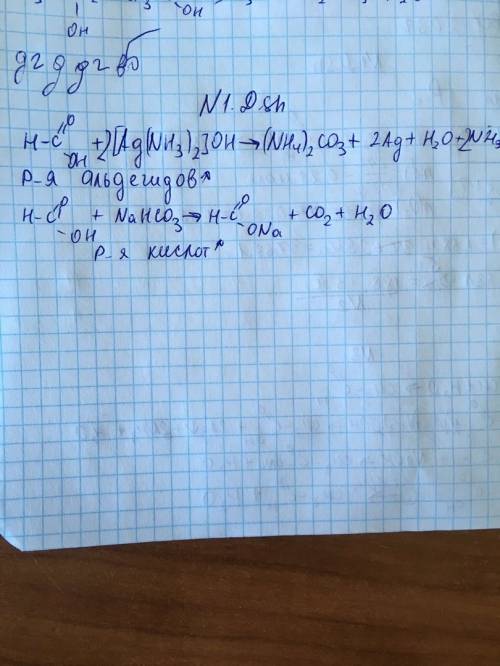 OH
OH
N1. D/sh
H-C=O OH + 2[Ag(NH3)2]OH → (NH4)2CO3 + 2Ag + H2O + 2NH3
Р-я альдегидов
H-C=O -OH + NaHCO3 → H-C=O ONa + CO2 + H2O
Р-я кислот